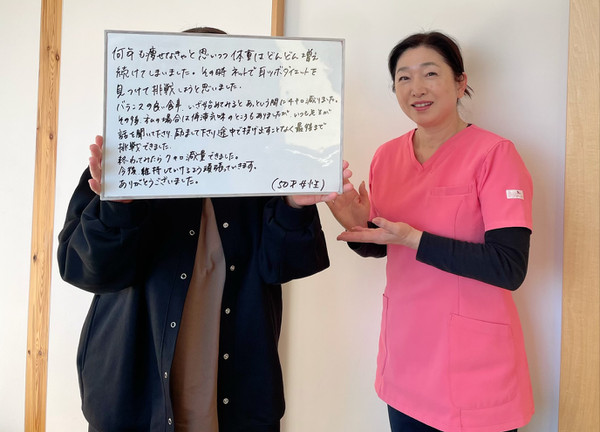 何年も痩せなきゃと思いつつ体重はどんどん増え
続けてしまいました。その時ネットで耳ツボダイエットを
見つけて挑戦しようと思いました。
バランスの良い食事、いざ始めてみるとあっという間に4キロ減りました。
その後、私の場合は停滞気味のところもありましたが、いつも先生が
話を聞いて下さり、励まして下さり途中で投げ出すことなく最後まで
挑戦できました。
終わってみたら7キロ減量できました。
今後、維持していけるよう頑張っていきます。
ありがとうございました。
(50才女性)